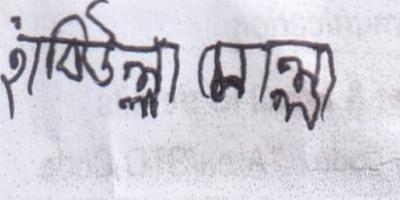 হাঁবিউল্লা মোল্লা